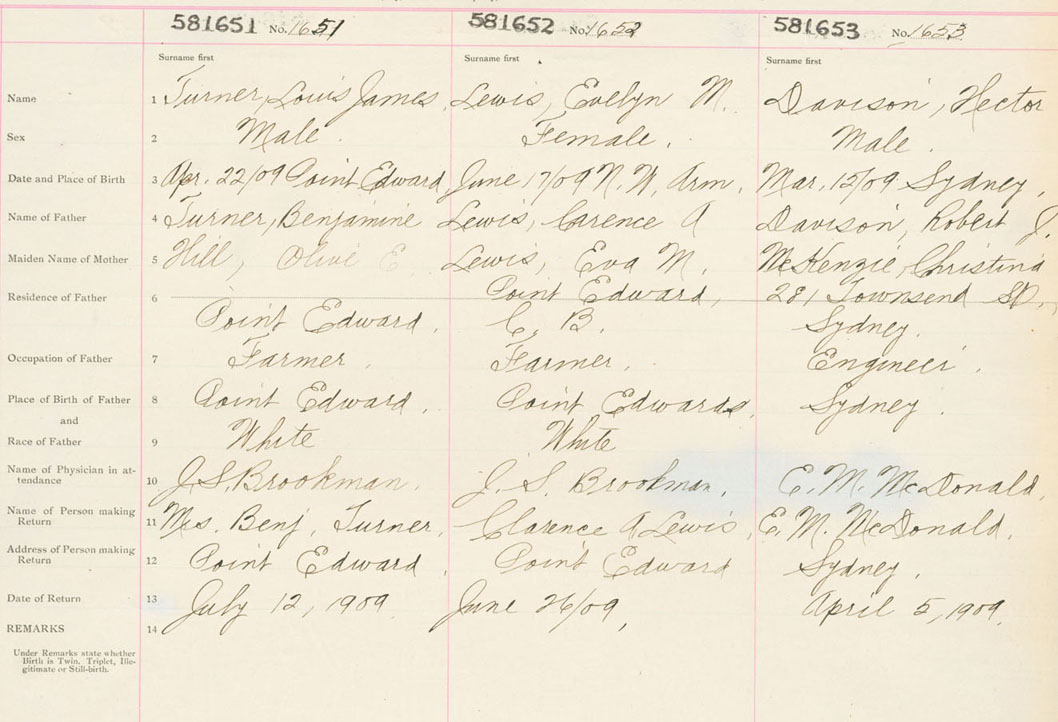 581651 No. 1651 581652 No. 1652 581653 No. 1653
Surname first Surname first Surname first
Name 1 Turner, Louis James. Lewis, Evelyn M. Davison, Hector
Sex 2 Male. Female. Male.
Date and Place of Birth 3 Apr. 22/09 Point Edward June 17/09 N. W. Arm. Mar. 12/09 Sydney.
Name of Father 4 Turner, Benjamine Lewis, Carence A Davison, Robert J.
Maiden Name of Mother 5 Hill, Olive E Lewis, Eva M. McKenzie, Christina
Residence of Father 6 Point Edward, 281 Townsend St.,
Point Edward. C. B. Sydney.
Occupation of Father 7 Farmer. Farmer. Engineer.
Place of Birth of Father 8 Point Edward. Point Edwards, Sydney.
and
Race of Father 9 White White
Name of Physician in at-
tendance 10 J. S. Brookman. J. S. Brookman. E. M. McDonald.
Name of Person making
Return 11 Mrs. Benj. Turner. Clarence A Lewis. E. M. McDonald.
Address of Person making
Return 12 Point Edward. Point Edward Sydney.
Date of Return 13 July 12, 1909 June 26/09, April 5, 1909.
REMARKS 14
Under Remarks state whether
Birth is Twin. Triplet, Ille-
gitimate or Still-birth.